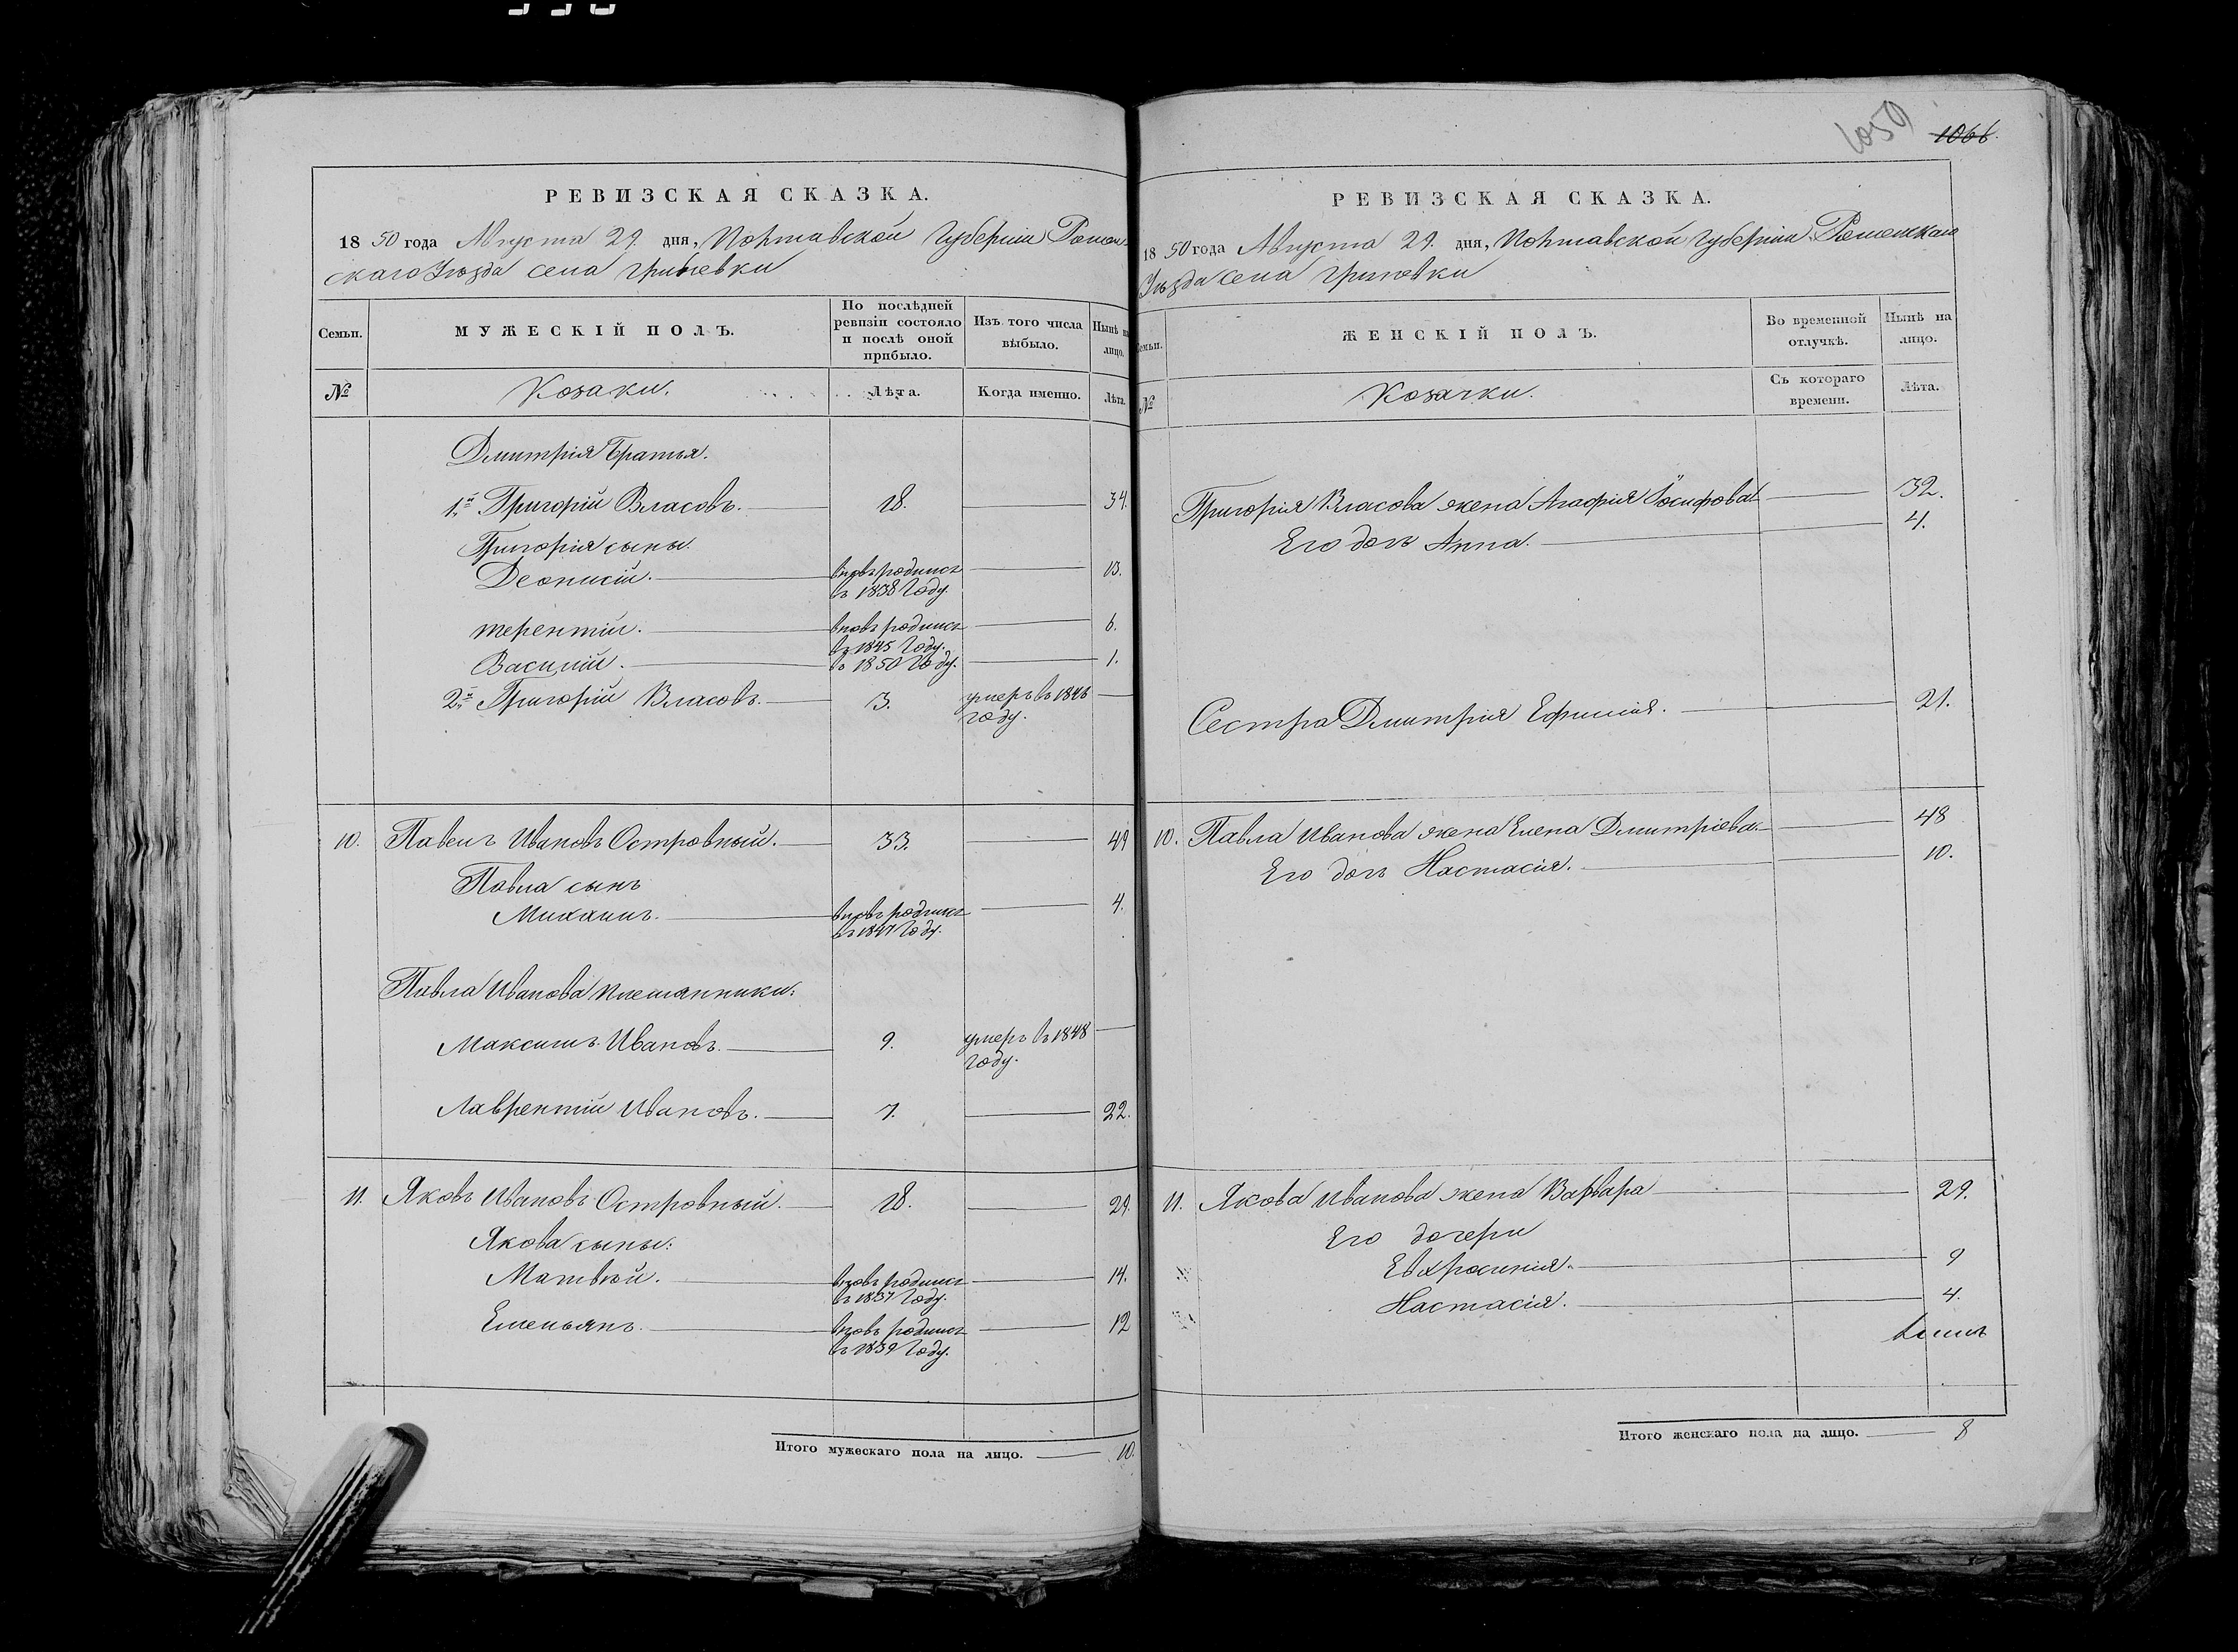 РЕВИЗСКАЯ СКАЗКА.
1850 года Августа 29. дня, Полтавской Губерніи Ромен-
скаго Уѣзда села
Семьи.
МУЖЕСКІЙ ПОЛЪ.
По послѣдней ревизіи состояло и послѣ оной прибыло.
Изъ того числа выбыло.
Нынѣ на лицо.
№
Козаки.
Лѣта.
Когда именно.
Лѣта.
Дмитрія Братья.
1й Григорій Власовъ. 18. 34.
Григорія сыны.
Деонисій. вновь родился 13.
въ 1838 Году.
терентій. вновь родился 6.
въ 1845 Году.
Василій. въ 1850 Году. 1.
2й Григорій Власовъ. 3. умеръ въ 1846
году.
10. Павелъ Ивановъ Островный. 33. 49
Павла сынъ
Михаилъ. вновь родился 4.
въ 1847 Году.
Павла Иванова племянники:
Максимъ Ивановъ. 9. умеръ въ 1848
году.
Лаврентій Ивановъ. 7. 22.
11. Яковъ Ивановъ Островный. 18. 29.
Якова сыны:
Матвѣй. вновь родился 14.
въ 1837 Году.
Емельянъ. вновь родился 12
въ 1839 Году.
Итого мужескаго пола на лицо. 10.
1059 1066.
РЕВИЗСКАЯ СКАЗКА.
1850 года Августа 29. дня, Полтавской Губерніи Роменскаго
Уѣзда села
Семьи.
ЖЕНСКІЙ ПОЛЪ.
Во временной отлучкѣ.
Нынѣ на лицо.
№
Козачки.
Съ котораго времени.
Лѣта.
Григорія Власова жена Агафія Іосифова 32.
Его дочь Анна. 4.
Сестра Дмитрія Ефимія. 21.
10. Павла Иванова жена Елена Дмитріева. 48
Его дочь Настасія. 10.
11. Якова Иванова жена Варвара 29.
Его дочери
Евфросинія. 9
Настасія. 4.
Итого женскаго пола на лицо. 8